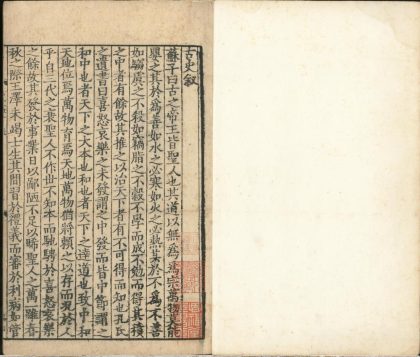 古史敘
蘇子曰古之帝王皆聖人也其道以無為為宗萬物莫能
嬰之其於為善如水之必寒如火之必熱其於不為不善
如騶虞之不殺如竊脂之不穀不學而成不勉而得其積
之中者有餘故其推之以治天下者有不可得而知也孔氏
之遺書曰喜怒哀樂之未發謂之中發而皆中節謂之
和中也者天下之大本也和也者天下之達道也致中和
天地位焉萬物育焉天地萬物猶將賴之以存而況於人
乎自三代之衰聖人不作世不知本而馳騁於喜怒哀樂
之餘故其發於事業日以鄙陋不足以睎聖人之萬一雖春
秋之際王澤未竭士生其間習於禮義而審於利病如管